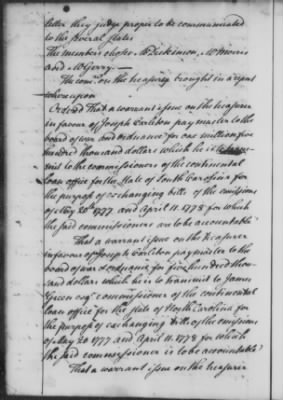 letter they judge proper to be communicated
to the several states.
The members chosen Mr Dickinson, Mr Morris
and Mr Gerry.—
The comee on the treasury brought in a report
whereupon
Ordered That a warrant issue on the treasurer
in favour of Joseph Carleton pay master to the
board of war and ordnance for one million five
hundred thousand dollars which he is to
mit to the commissioners of the continental
loan office for the State of South Carolina for
the purpose of exchanging bills of the emissions
of May 20th 1777 and April 11. 1778 for which
the said commissioners are to be accountable
That a warrant issue on the treasurer
in favour of Joseph Carleton pay master to the
board of war & ordnance for five hundred thous
and dollars which he is to transmit to James
Green esqr commissioner of the continental
loan office for the state of North Carolina for
the purpose of exchanging bills of the emissions
of May 20 1777 and April 11. 1778 for which
the said commissioner is to be accountable
That a warrant issue on the treasurer